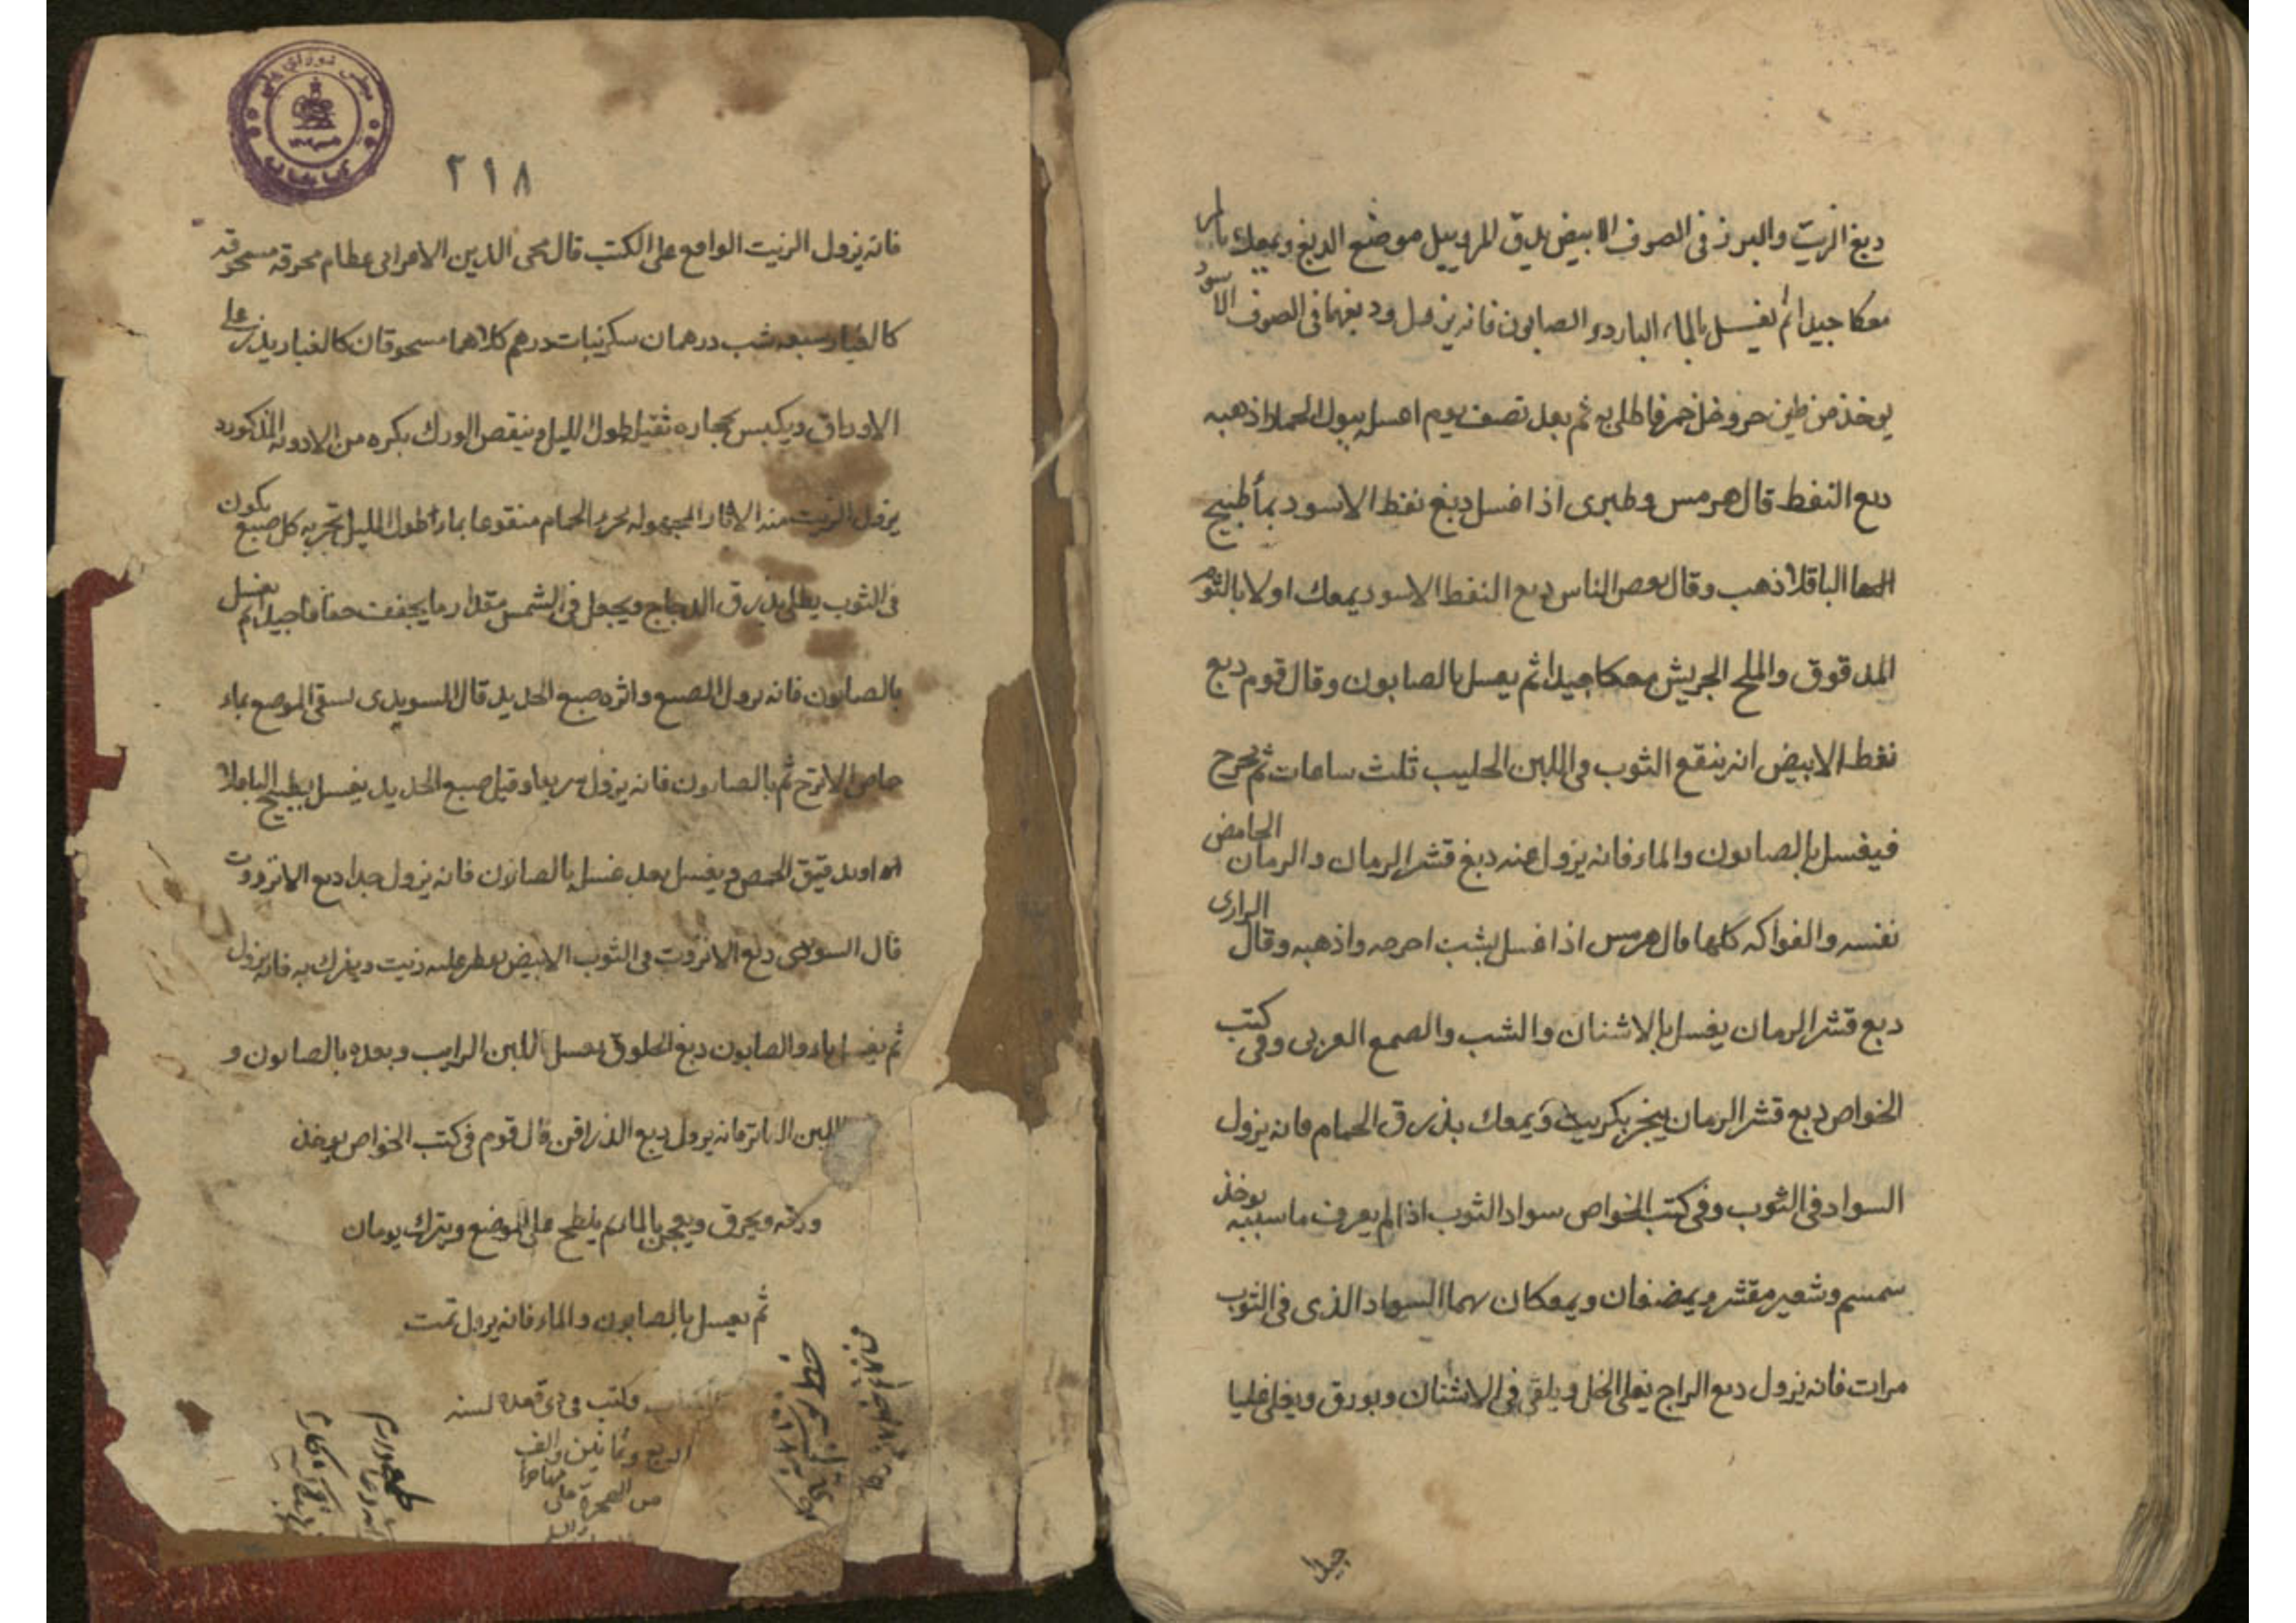 دبغ الزيت والبزر فى الصوف الابيض يدق المر ويبل موضع الدبغ ويمعك بالمر
معكا جيدا ثم يغسل بالماء البارد والصابون فانه يزول ودبغهما فى الصوف الاسود
يوخذ من طين حر وخل خمر فاطلى به ثم بعد نصف يوم اغسل ببول الحمار اذهبه
دبع النفط قال هرمس وطبرى اذا غسل دبغ نفط الاسود بمأ طبيخ
الباقلا ذهب وقال بعض الناس دبع النفط الاسود يمعك اولا بالثوم
المدقوق والملح الجريش معكا جيدا ثم يغسل بالصابون وقال قوم دبع
نفط الابيض انه ينقع الثوب فى اللبن الحليب ثلث ساعات ثم يخرج
فيغسل بالصابون والماء فانه يزول عنه دبغ قشر الرمان والرمان الحامض
نفسه والفواكه كلها قال هرمس اذا غسل بشب اخرجه واذهبه وقال الرازى
دبع قشر الرمان يغسل بالاشنان والشب والصمع العربى وفى كتب
الخواص دبع قشر الرمان يبخر بكبريت ويمعك بذرق الحمام فانه يزول
السواد فى الثوب وفى كتب الخواص سواد الثوب اذا لم يعرف ما سببه يوخذ
سمسم وشعير مقشر ويمضغان ويمعكان بهما السواد الذى فى الثوب
مرات فانه يزول دبع الزاج يغلى الخل ويلقى فى الاشنان وبورق ويغلى غليا
جيدا
٢١٨
فانه يزول الزيت الواقع على الكتب قال محى الدين الاعرابى عظام محرقه مسحوقه
كالغبار سبعه شب درهمان سكرنبات درهم كلاهما مسحوقان كالغبار يذر على
الاوراق ويكبس بحجاره ثقيل طول الليل وينفض الورق بكره من الادويه المذكوره
يزول الزيت منه الاثار المجهوله بخرء الحمام منقوعا بماء طول الليل تجربه كل صبع يكون
فى الثوب يطلى بذرق الدجاج ويجعل فى الشمس مقدار ما يجفف جفافا جيدا ثم يغسل
بالصابون فانه يزول الصبع واثره صبع الحديد قال السويدى يسقى الموضع بماء
حماض الاترج ثم بالصابون فانه يزول سريعا وقيل صبع الحديد يغسل بطبيخ الباقلا
او بدقيق الحمص ويغسل بعد غسل بالصابون فانه يزول جدا دبع الانزروت
قال السويدى دبع الانزروت فى الثوب الابيض يقطر عليه زيت ويفرك به فانه يزول
ثم يغسل بماء والصابون دبغ الخلوق يغسل اللبن الرايب وبعده بالصابون و
اللبن فانه يزول دبع الذراقن قال قوم فى كتب الخواص يوخذ
ورقه ويحرق ويعجن بالماء ثم يلطخ على الموضع ويترك يومان
ثم يغسل بالصابون والماء فانه يزول تمت
وكتب فى ذى قعده لسنه
اربع وثمانين والف
من الهجرة على مهاجرها